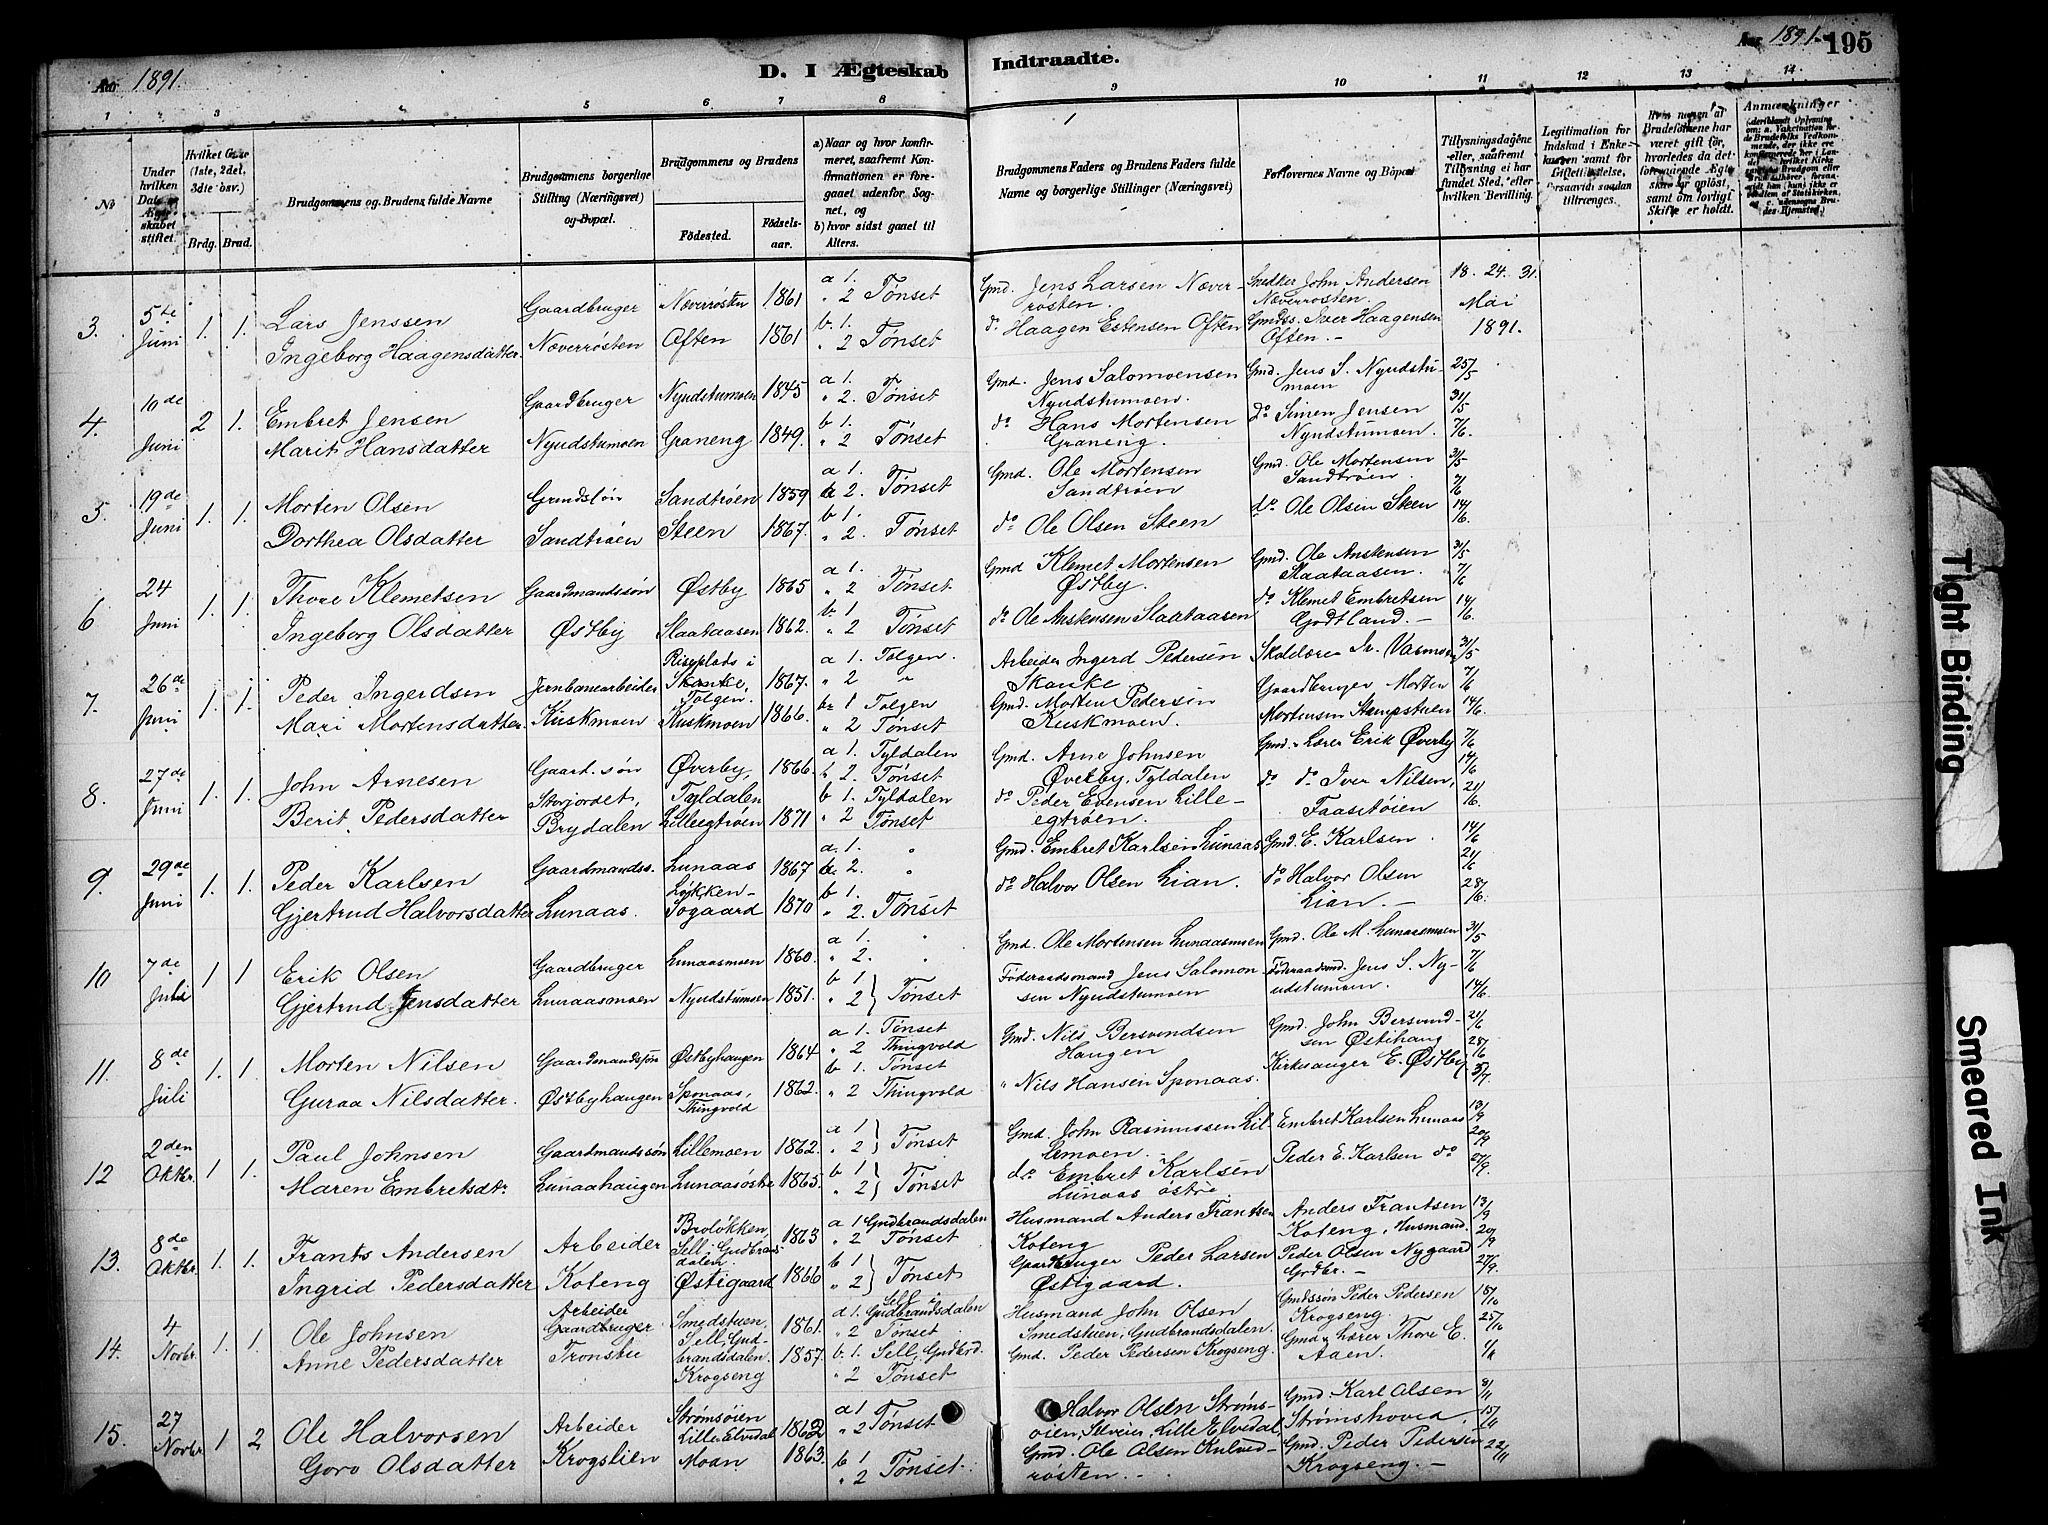 Aar 1891.
D. I Ægteskab Indtraadte.
Aar 1891. 195
1 2 3 5 6 7 8 9 10 11 12 13 14
No
Under hvilken Datum Ægteskabet stiftet
Hvilket Gang (1ste, 2det, 3die osv.)
Brdg. Brud.
Brudgommens og Brudens fulde Navne
Brudgommens borgerlige Stilling (Næringsvei) og Bopæl.
Brudgommens og Brudens
Födested. Födselsaar.
a) Naar og hvor konfirmeret, saafremt Konfirmationen er foregaaet udenfor Sognet, og
b) hvor sidst gaaet til Alters.
Brudgommens Faders og Brudens Faders fulde Navne og borgerlige Stillinger (Næringsvei)
Forlovernes Navne og Bopæl
Tillysningsdagene eller, saafremt Tillysning ei har fundet Sted, efter hvilken Bevilling.
Legitimation for Indskud i Enkekassen samt for Giftetilladelse, forsaavidt saadan tiltrænges.
Hvis nogen af Brudefolkene har været gift för, hvorledes da det foregaaende Ægteskab er oplöst, samt om lovligt Skifte er holdt.
Anmærkninger
3. 5te Juni 1. 1. Lars Jenssen Gaardbruger Næverrösten 1861 a 1. " 2 Tönset Gmd. Jens Larsen Næverrösten. Snedker John Andersen Næverrosten. 18. 24. 31. Mai 1891.
Ingeborg Haagensdatter. Næverrosten Often 1861 b. 1. " 2 Tönset do Haagen Estensen Often Gmdss. Iver Haagensen Often.
4. 10de Juni 2 1. Embret Jensen Gaardbruger Nyudstumoen 1845 a 1. " 2. Tönset Gmd. Jens Salomonsen Nyudstumoen. Gmd. Jens S. Nyudstumoen 25/5 31/5 7/6
Marit Hansdatter Nyudstumoen Graneng 1849. b 1. " 2 Tönset do Hans Mortensen Graneng. do Simen Jensen Nyudstumoen.
5. 19de Juni 1. 1. Morten Olsen Grmdssön Sandtröen 1859 a 1. 2. Tönset Gmd. Ole Mortensen Sandtröen Gmd. Ole Mortensen Sandtröen. 31/5 7/6 14/6
Dorthea Olsdatter Sandtröen Steen 1867. b 1. " 2. Tönset do Ole Olsen Steen do Ole Olsen Steen
6 24 Juni 1. 1. Thore Klemetsen Gaardmandssön Østby 1865 a 1. " 2 Tönset Gmd Klemet Mortensen Østby. Gmd. Ole Anstensen Slaataasen. 31/5 7/6 14/6
Ingeborg Olsdatter Østby Slaataasen 1862. b. 1 " 2 Tönset do Ole Anstensen Slaataasen do Klemet Embretsen Godtland.
7. 26de Juni 1. 1. Peder Ingerdsen Jernbanearbeider Riseplads i Skanke, Tolgen. 1867. a 1. Tolgen. " 2 " Arbeider Ingerd Pedersen Skanke. Skolelærer Vasmoen 31/5 7/6 14/6
Mari Mortensdatter. Kuskmoen Kuskmoen 1866. b. 1 Tolgen " 2 Tönset Gmd. Morten Pedersen Kuskmoen. Gaardbruger Morten Mortensen
8. 27de Juni 1. 1. John Arnesen Gaard. sön Øverby, Tyldalen 1866. a 1. Tyldalen 2. Tönset Gmd. Arne Johnsen Øverby, Tyldalen Gmd. Lærer Erik Øverby 7/6 14/6 21/6
Berit Pedersdatter Storjordet, Brydalen Lilleegtröen 1871 b 1. Tyldalen " 2 Tönset do Peder Evensen Lilleegtröen. do do Iver Nilsen,
9. 29de Juni 1. 1. Peder Karlsen Gaardmandss. Lunaas 1867 a. 1. " 2. " Gmd. Embret Karlsen Lunaas Gmd. E. Karlsen 14/6 21/6 28/6.
Gjertrud Halvorsdatter Lunaas. Lökken-Togaard 1870 b 1. " 2. Tönset do Halvor Olsen Lian. do Halvor Olsen Lian.
10 7de Juli 1 1 Erik Olsen Gaardbruger Lunaasmoen 1860. a 1. " " 2. " Gmd. Ole Mortensen Lunaasmoen Gmd. Ole M. Lunaasmoen 31/5 7/6 14/6.
Gjertrud Jensdatter Lunaasmoen Nyudstumoen 1851. b 1 " 2 Tönset Föderaadsmand Jens Salomonsen Nyudstumoen Föderaadsmd. Jens S. Nyudstumoen.
11. 8de Juli 1. 1. Morten Nilsen Gaardmandssön Østbyhaugen 1864 a 1. Tönset " 2 Thingvold Gmd. Nils Bersvendsen Haugen Gmd. John Bersvendsen Østihaug 21/6 28/6 5/7.
Guraa Nilsdatter. Østbyhaugen Sponaas, Thingvold 1862. b 1. Tönset " 2 Thingvold " Nils Hansen Sponaas. Kirkesanger E. Østby
12 2den Oktbr. 1 1. Paul Johnsen Gaardmandssön Lillemoen 1862. a 1 " 2 Tönset Gmd. John Rasmussen Lillemoen. Embret Karlsen Lunaas 13/9 20/9 27/9.
Maren Embretsdtr. Lunaahaugen Lunaasöstre 1865. b 1 " 2 Tönset do Embret Karlsen Lunaas östre Peder E. Karlsen do
13. 8de Oktbr. 1. 1. Frants Andersen Arbeider Brolökken, Sell. Gudbransdalen. 1863 a 1 Gudbrandsdalen " 2 Tönset. Husmand Anders Frantsen Koteng Anders Frantsen Koteng, Husmand. 13/9 20/9 27/9.
Ingrid Pedersdatter Koteng Østigaard 1866 b 1 " 2 Tönset Gaardbruger Peder Larsen Østigaard. Peder Olsen Nygaard Grdbr.
14. 4 Novbr. 1. 1. Ole Johnsen Arbeider Gaardbruger Smedstuen, Sell, Gudbrandsdalen. 1861. a 1. Sell i Gudbrandsdalen " 2 Tönset. Husmand John Olsen Smedstuen, Gudbrandsdalen. Gmdssön Peder Pedersen Krogseng. 18/10 25/10 1/11
Anne Pedersdatter Tronstu Krogseng 1857. b. 1. Sell, Gudbrd. " 2 Tönset Gmd. Peder Pedersen Krogseng. Gmd. & Lærer Thore E. Aaen.
15. 27 Novbr. 1 2 Ole Halvorsen Arbeider Strömsöien Lille Elvedal 1862 a 1 " 2 Tönset Halvor Olsen Strömsöien, Lille Elvedal, Gmd. Karl Olsen Strömshoved. 8/11 15/11 22/11
Goro Olsdatter Krogslien Moan 1863. b 1 " 2 Tönset. Gmd. Ole Olsen Kulvedrösten. Gmd. Peder Pedersen Krogseng.
Tight Binding
Smeared Ink